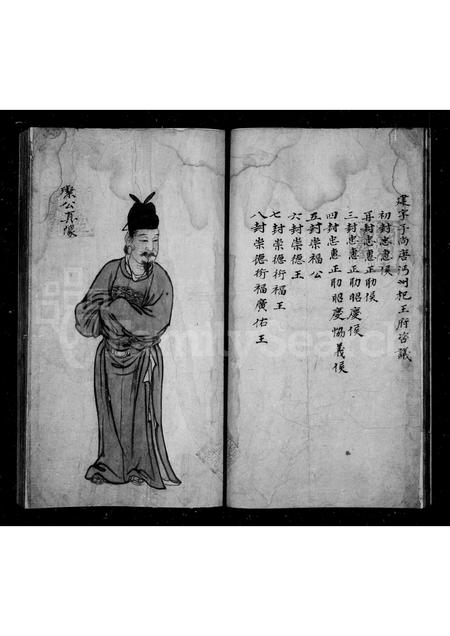 建字子尚唐沔州杞王府咨議
初封忠惠侯
再封忠惠正肋侯
三封忠惠正肋昭慶侯
四封忠惠正肋昭慶恊義侯
五封崇福公
六封崇德王
七封崇德術福王
八封崇德術福廣佑王
公真像
FamilySearch